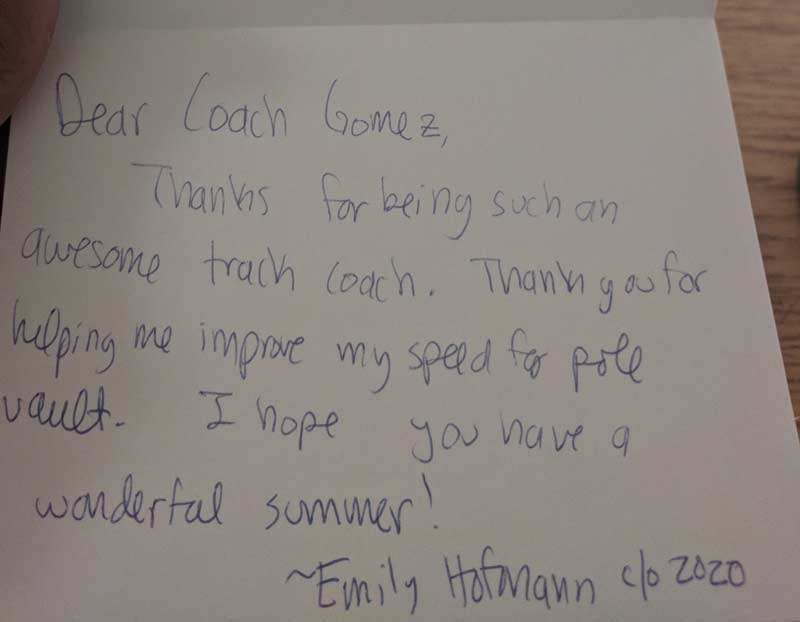 Dear Coach Gomez,
Thanks for being such an
awesome track coach. Thank you for
helping me improve my speed for pole
vault. I hope you have a
wonderful summer!
~Emily Hofmann c/o 2020